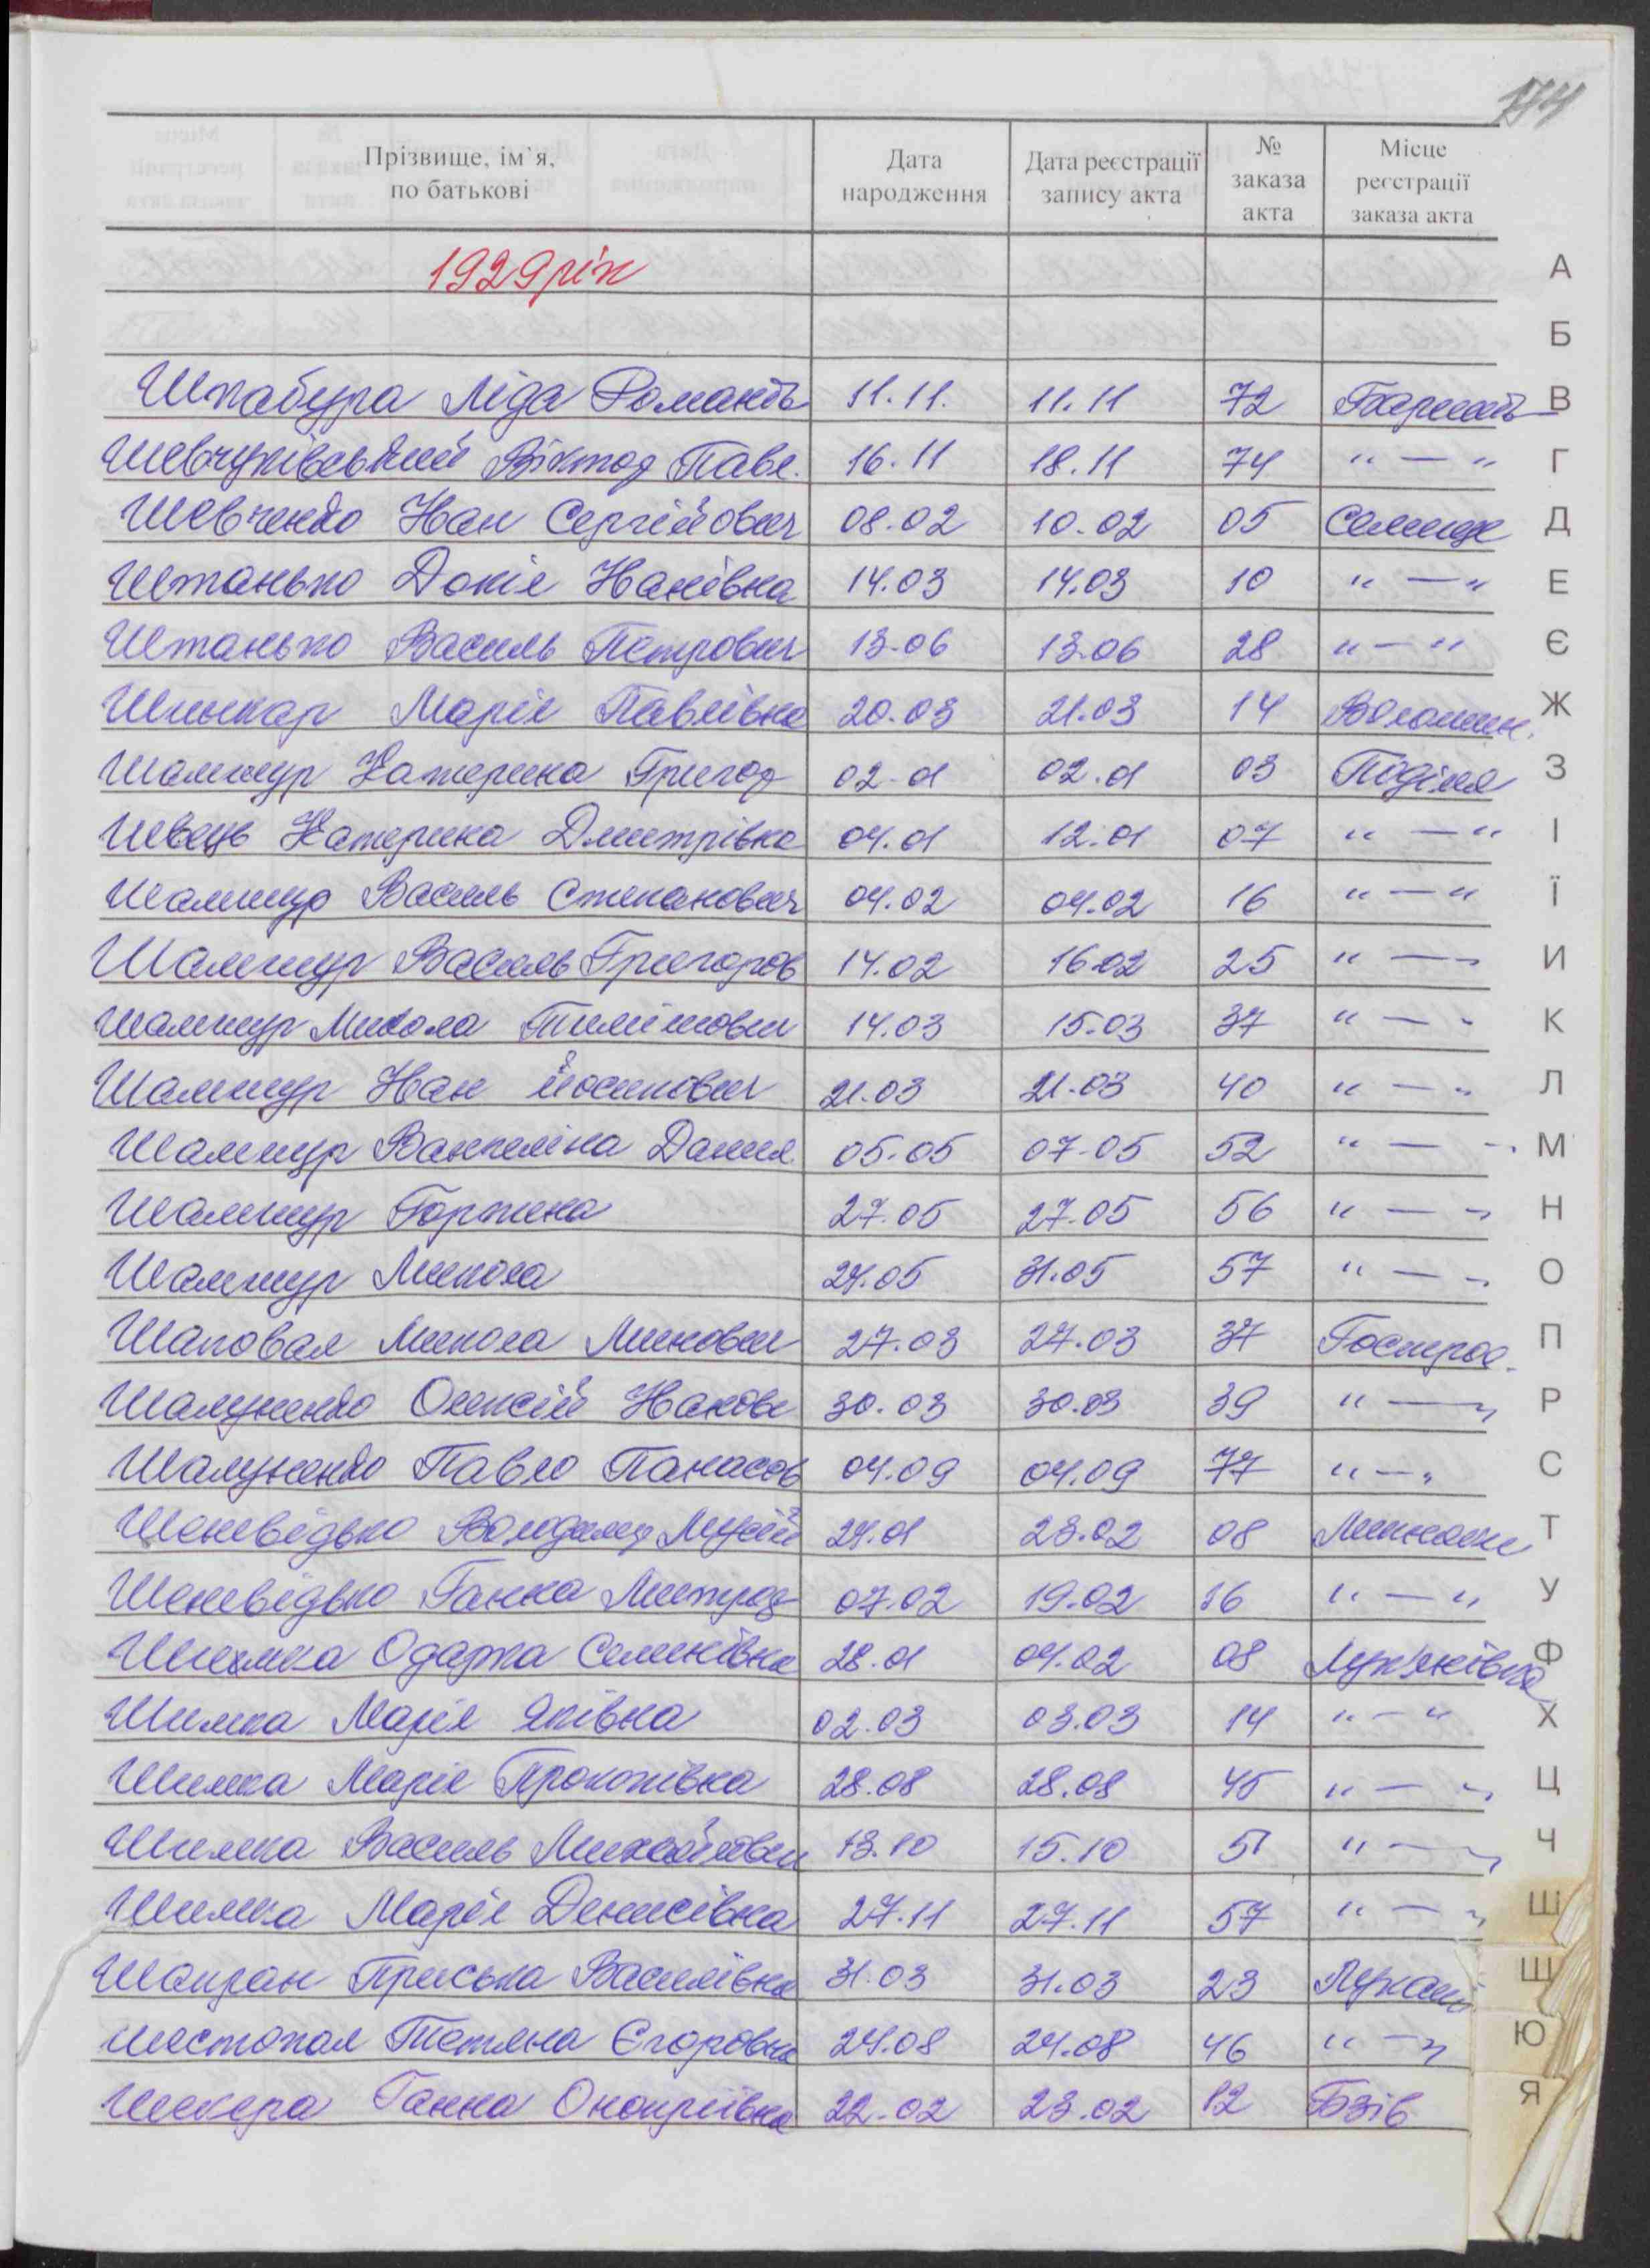 174
Прізвище, ім`я, по батькові | Дата народження | Дата реєстрації запису акта | № заказа акта | Місце реєстрації заказа акта
1929 рік
Шкабура Ліда Романів 11.11. 11.11 72
Шевчуківський Віктор Павл. 16.11 18.11 74 " — "
Шевченко Іван Сергійович 08.02 10.02 05 Селище
Штанько Докія Іванівна 14.03 14.03 10 " — "
Штанько Василь Петрович 13.06 13.06 28 " — "
Шинкар Марія Павлівна 20.03 21.03 14 Волошин.
Шамшур Катерина Григор 02.01 02.01 03 Поділля
Швець Катерина Дмитрівна 04.01 12.01 07 " — "
Шамшур Василь Степанович 04.02 04.02 16 " — "
Шамшур Василь Григоров 14.02 16.02 25 " — "
Шамшур Микола Тимішович 14.03 15.03 37 " — "
Шамшур Іван Йосипович 21.03 21.03 40 " — "
Шамшур Вангеліна Данил. 05.05 07.05 52 " — "
Шамшур Горпина 27.05 27.05 56 " — "
Шамшур Микола 24.05 31.05 57 " — "
Шаповал Микола Минович 27.03 27.03 37 Гострол.
Шалуненко Олексій Іванов 30.03 30.03 39 " — "
Шалуненко Павло Панасов 04.09 04.09 77 " — "
Шеневідько Володимир Мусій 24.01 23.02 08
Шеневідько Ганна Митроф 07.02 19.02 16 " — "
Шимка Одарка Семенівна 28.01 04.02 08 Лук'янівка
Шимка Марія Яківна 02.03 03.03 14 " — "
Шимка Марія Прокопівна 28.08 28.08 45 " — "
Шимка Василь Михайлович 13.10 15.10 51 " — "
Шимка Марія Денисівна 27.11 27.11 57 " — "
Шапран Приська Василівна 31.03 31.03 23 Лукаші
Шестопал Тетяна Єгоровна 24.08 24.08 46 " — "
Шекера Ганна Онопріївна 22.02 23.02 12 Бзів
А
Б
В
Г
Д
Е
Є
Ж
З
І
Ї
И
К
Л
М
Н
О
П
Р
С
Т
У
Ф
Х
Ц
Ч
Ш
Щ
Ю
Я